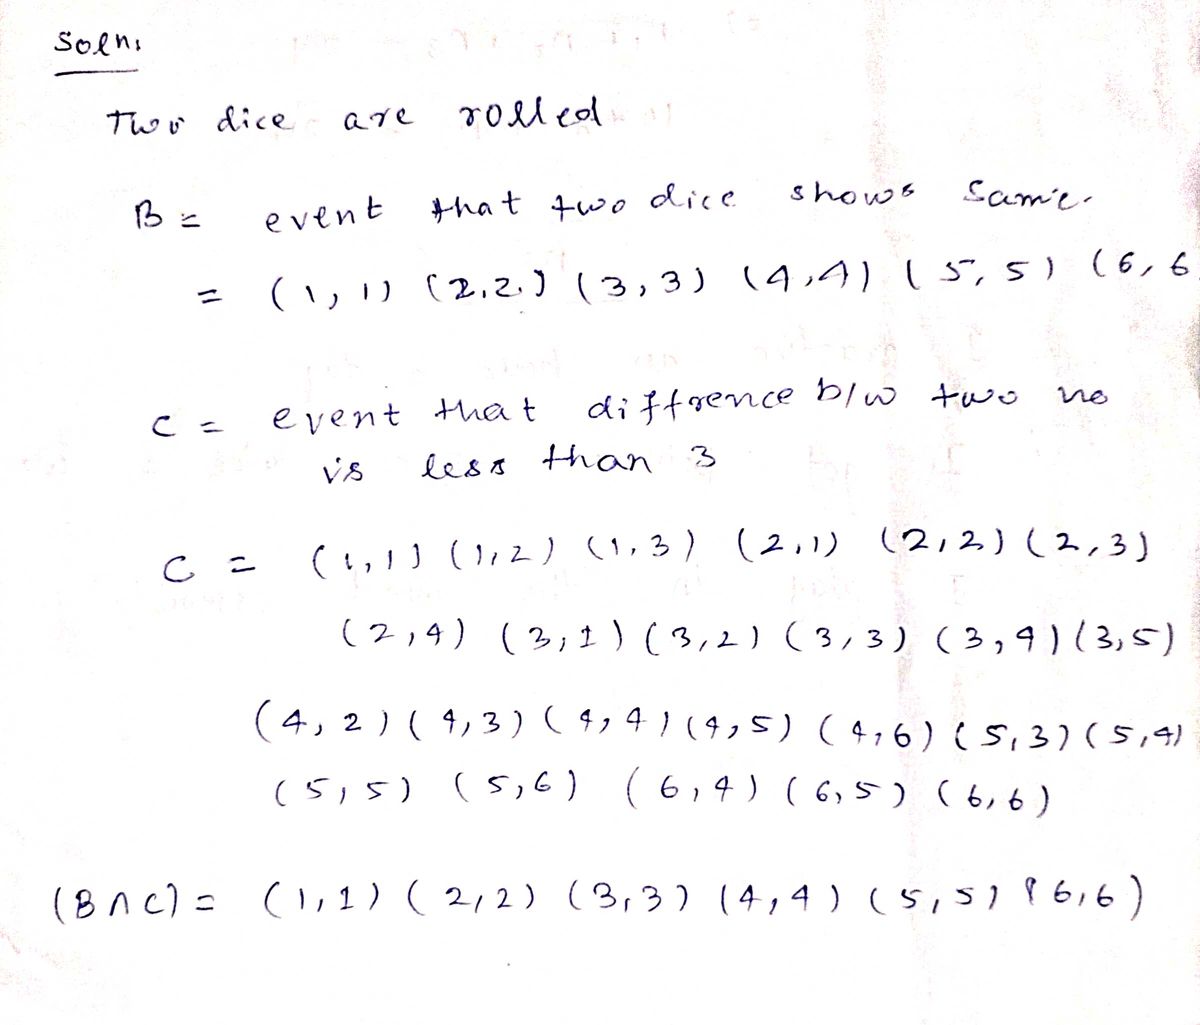 Soln:
Two dice are rolled
B = event that two dice shows same.
= (1,1) (2,2) (3,3) (4,4) (5,5) (6,6
C = event that diffrence b/w two no
is less than 3
C = (1,1) (1,2) (1,3) (2,1) (2,2) (2,3)
(2,4) (3,1) (3,2) (3,3) (3,4) (3,5)
(4,2) (4,3) (4,4) (4,5) (4,6) (5,3) (5,4)
(5,5) (5,6) (6,4) (6,5) (6,6)
(B∩C) = (1,1) (2,2) (3,3) (4,4) (5,5) (6,6)